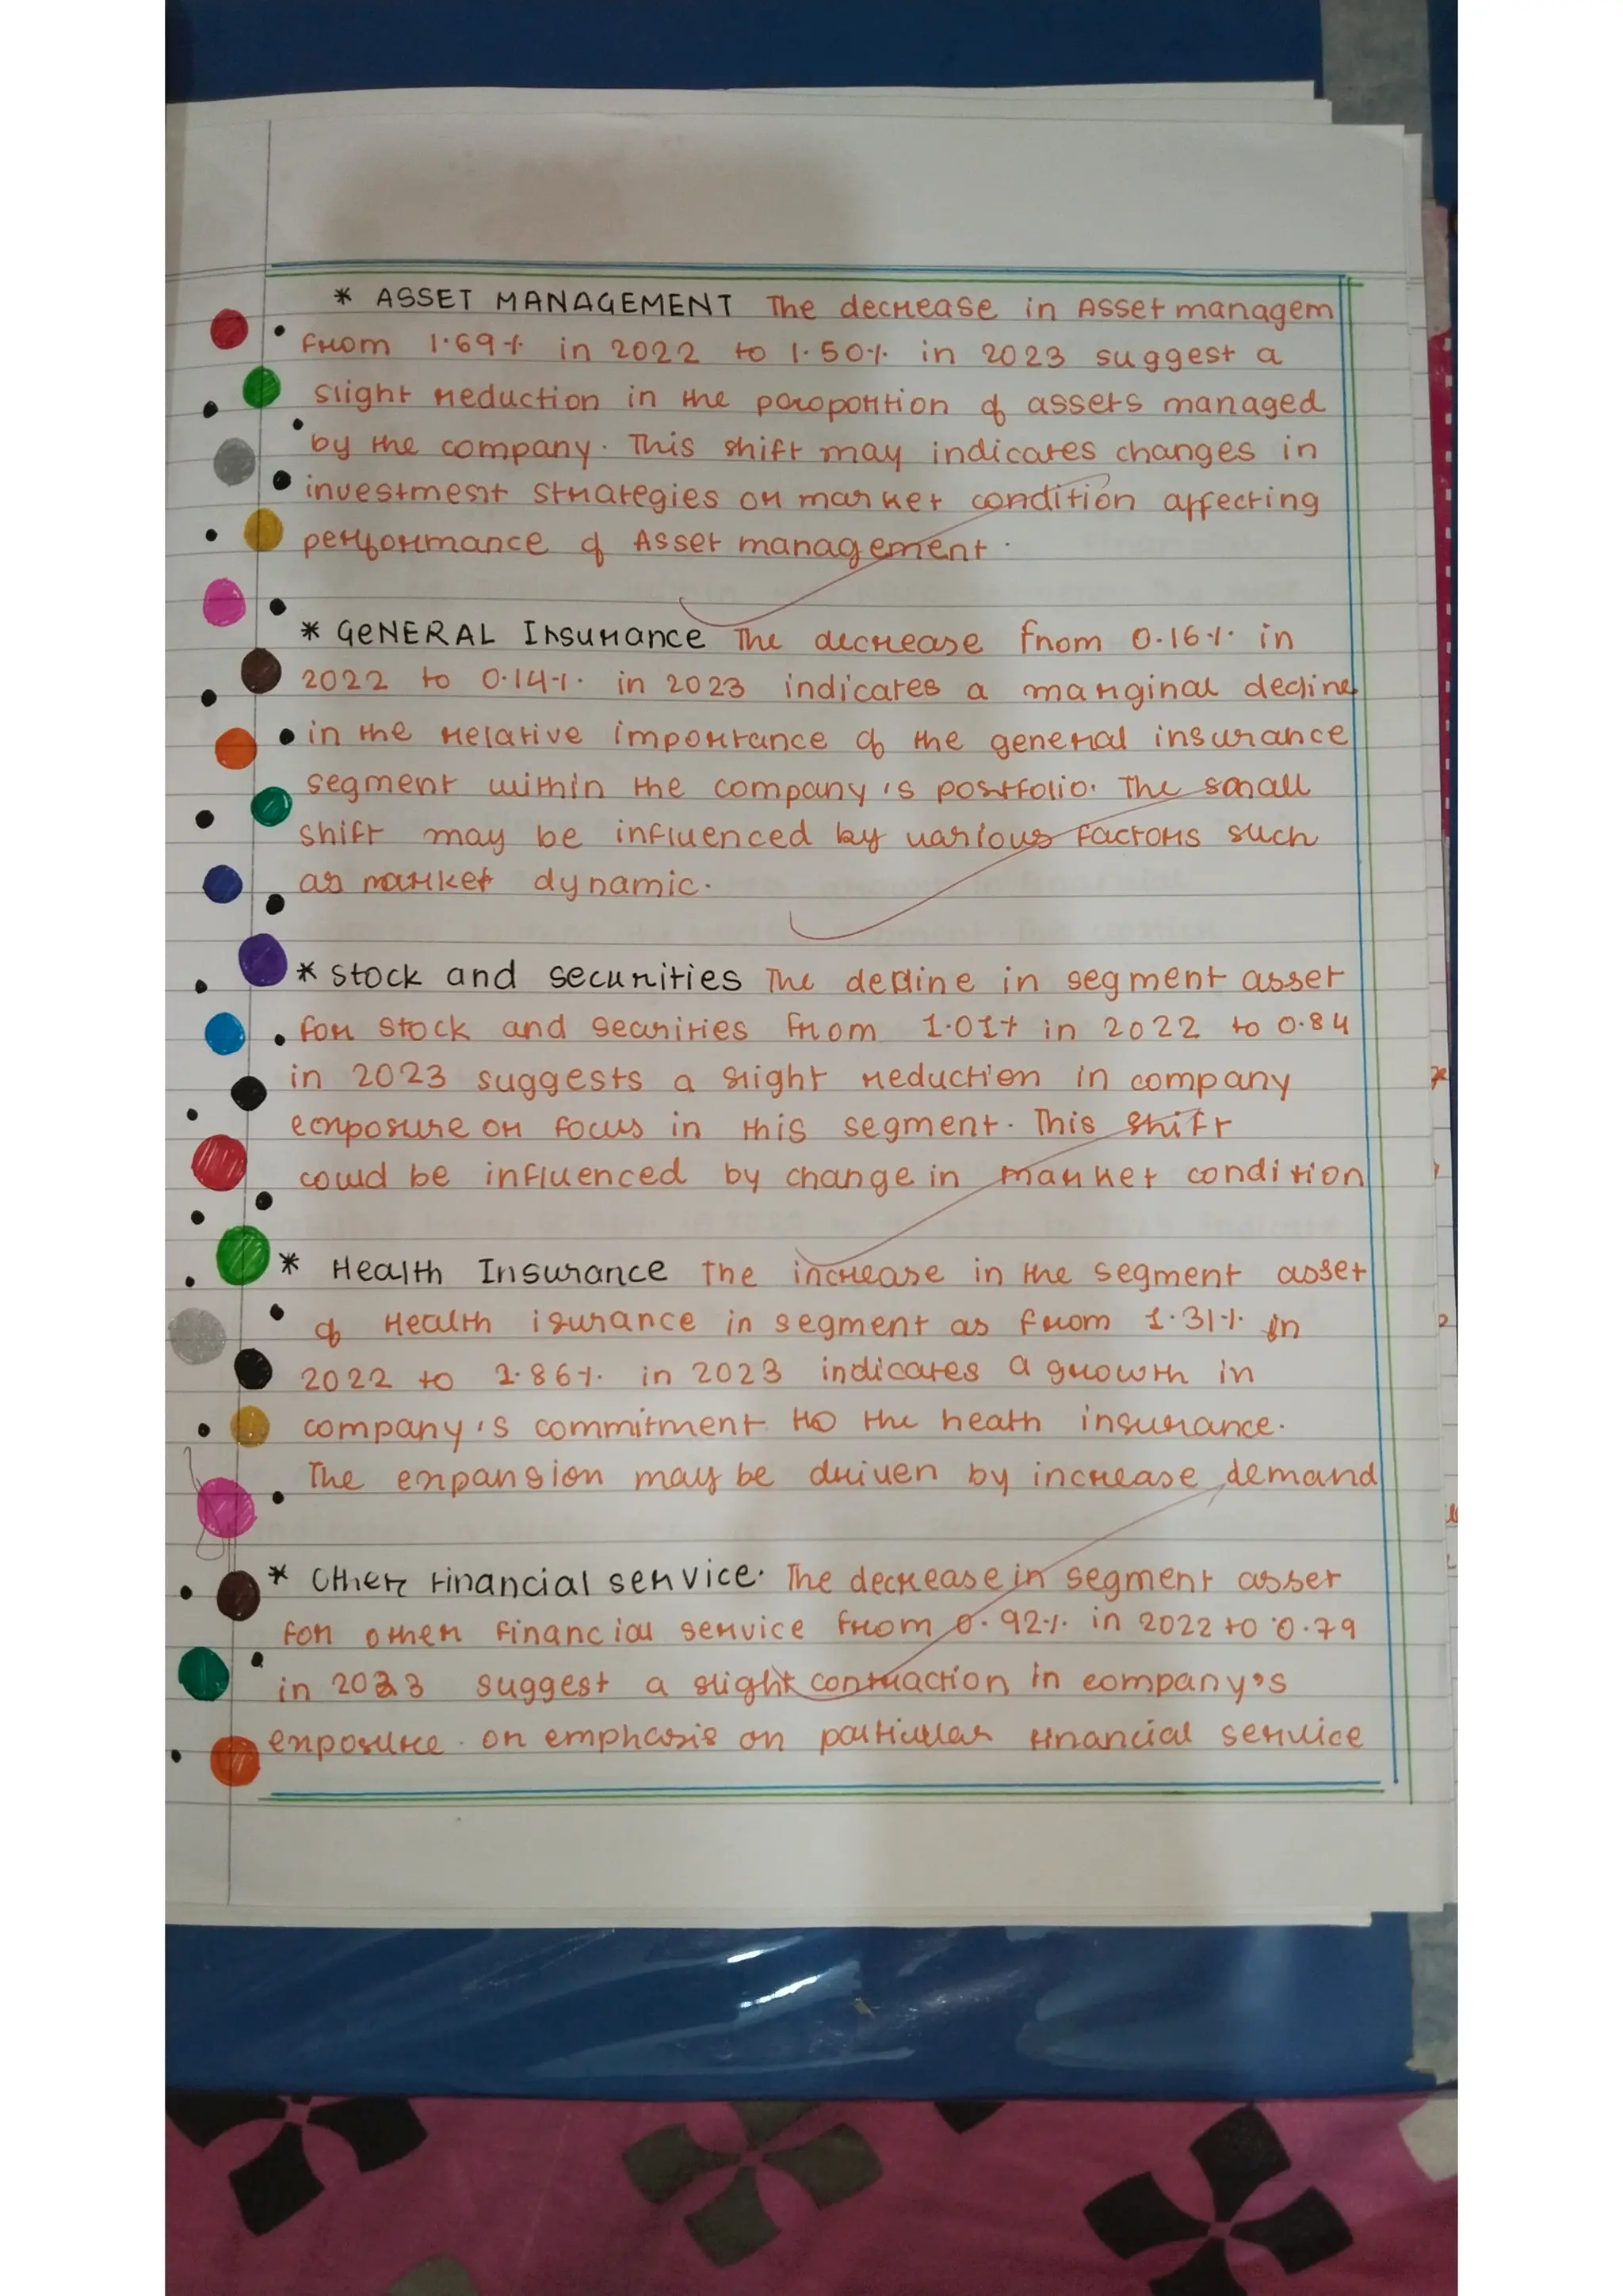 * ASSET MANAGEMENT The decrease in Asset managem
from 1.69% in 2022 to 1.50% in 2023 suggest a
slight reduction in the proportion of assets managed
by the company. This shift may indicates changes in
investment strategies or market condition affecting
performance of Asset management.
* GeNERAL Insurance The decrease from 0.16% in
2022 to 0.14%. in 2023 indicates a marginal decline
in the relative importance of the general insurance
segment within the company's portfolio. The small
shift may be influenced by various factors such
as market dynamic.
* Stock and securities The decline in segment asset
for stock and securities from 1.01% in 2022 to 0.84
in 2023 suggests a slight reduction in company
exposure or focus in this segment. This shift
could be influenced by change in market condition
* Health Insurance The increase in the segment asset
of Health isurance in segment as from 1.31% in
2022 to 1.86% in 2023 indicates a growth in
company's commitment to the heath insurance.
The expansion may be driven by increase demand
* Other Financial service. The decrease in segment asset
for other financial service from 0.92% in 2022 to 0.79
in 2023 suggest a slight contraction in company's
exposure or emphasis on particular financial service